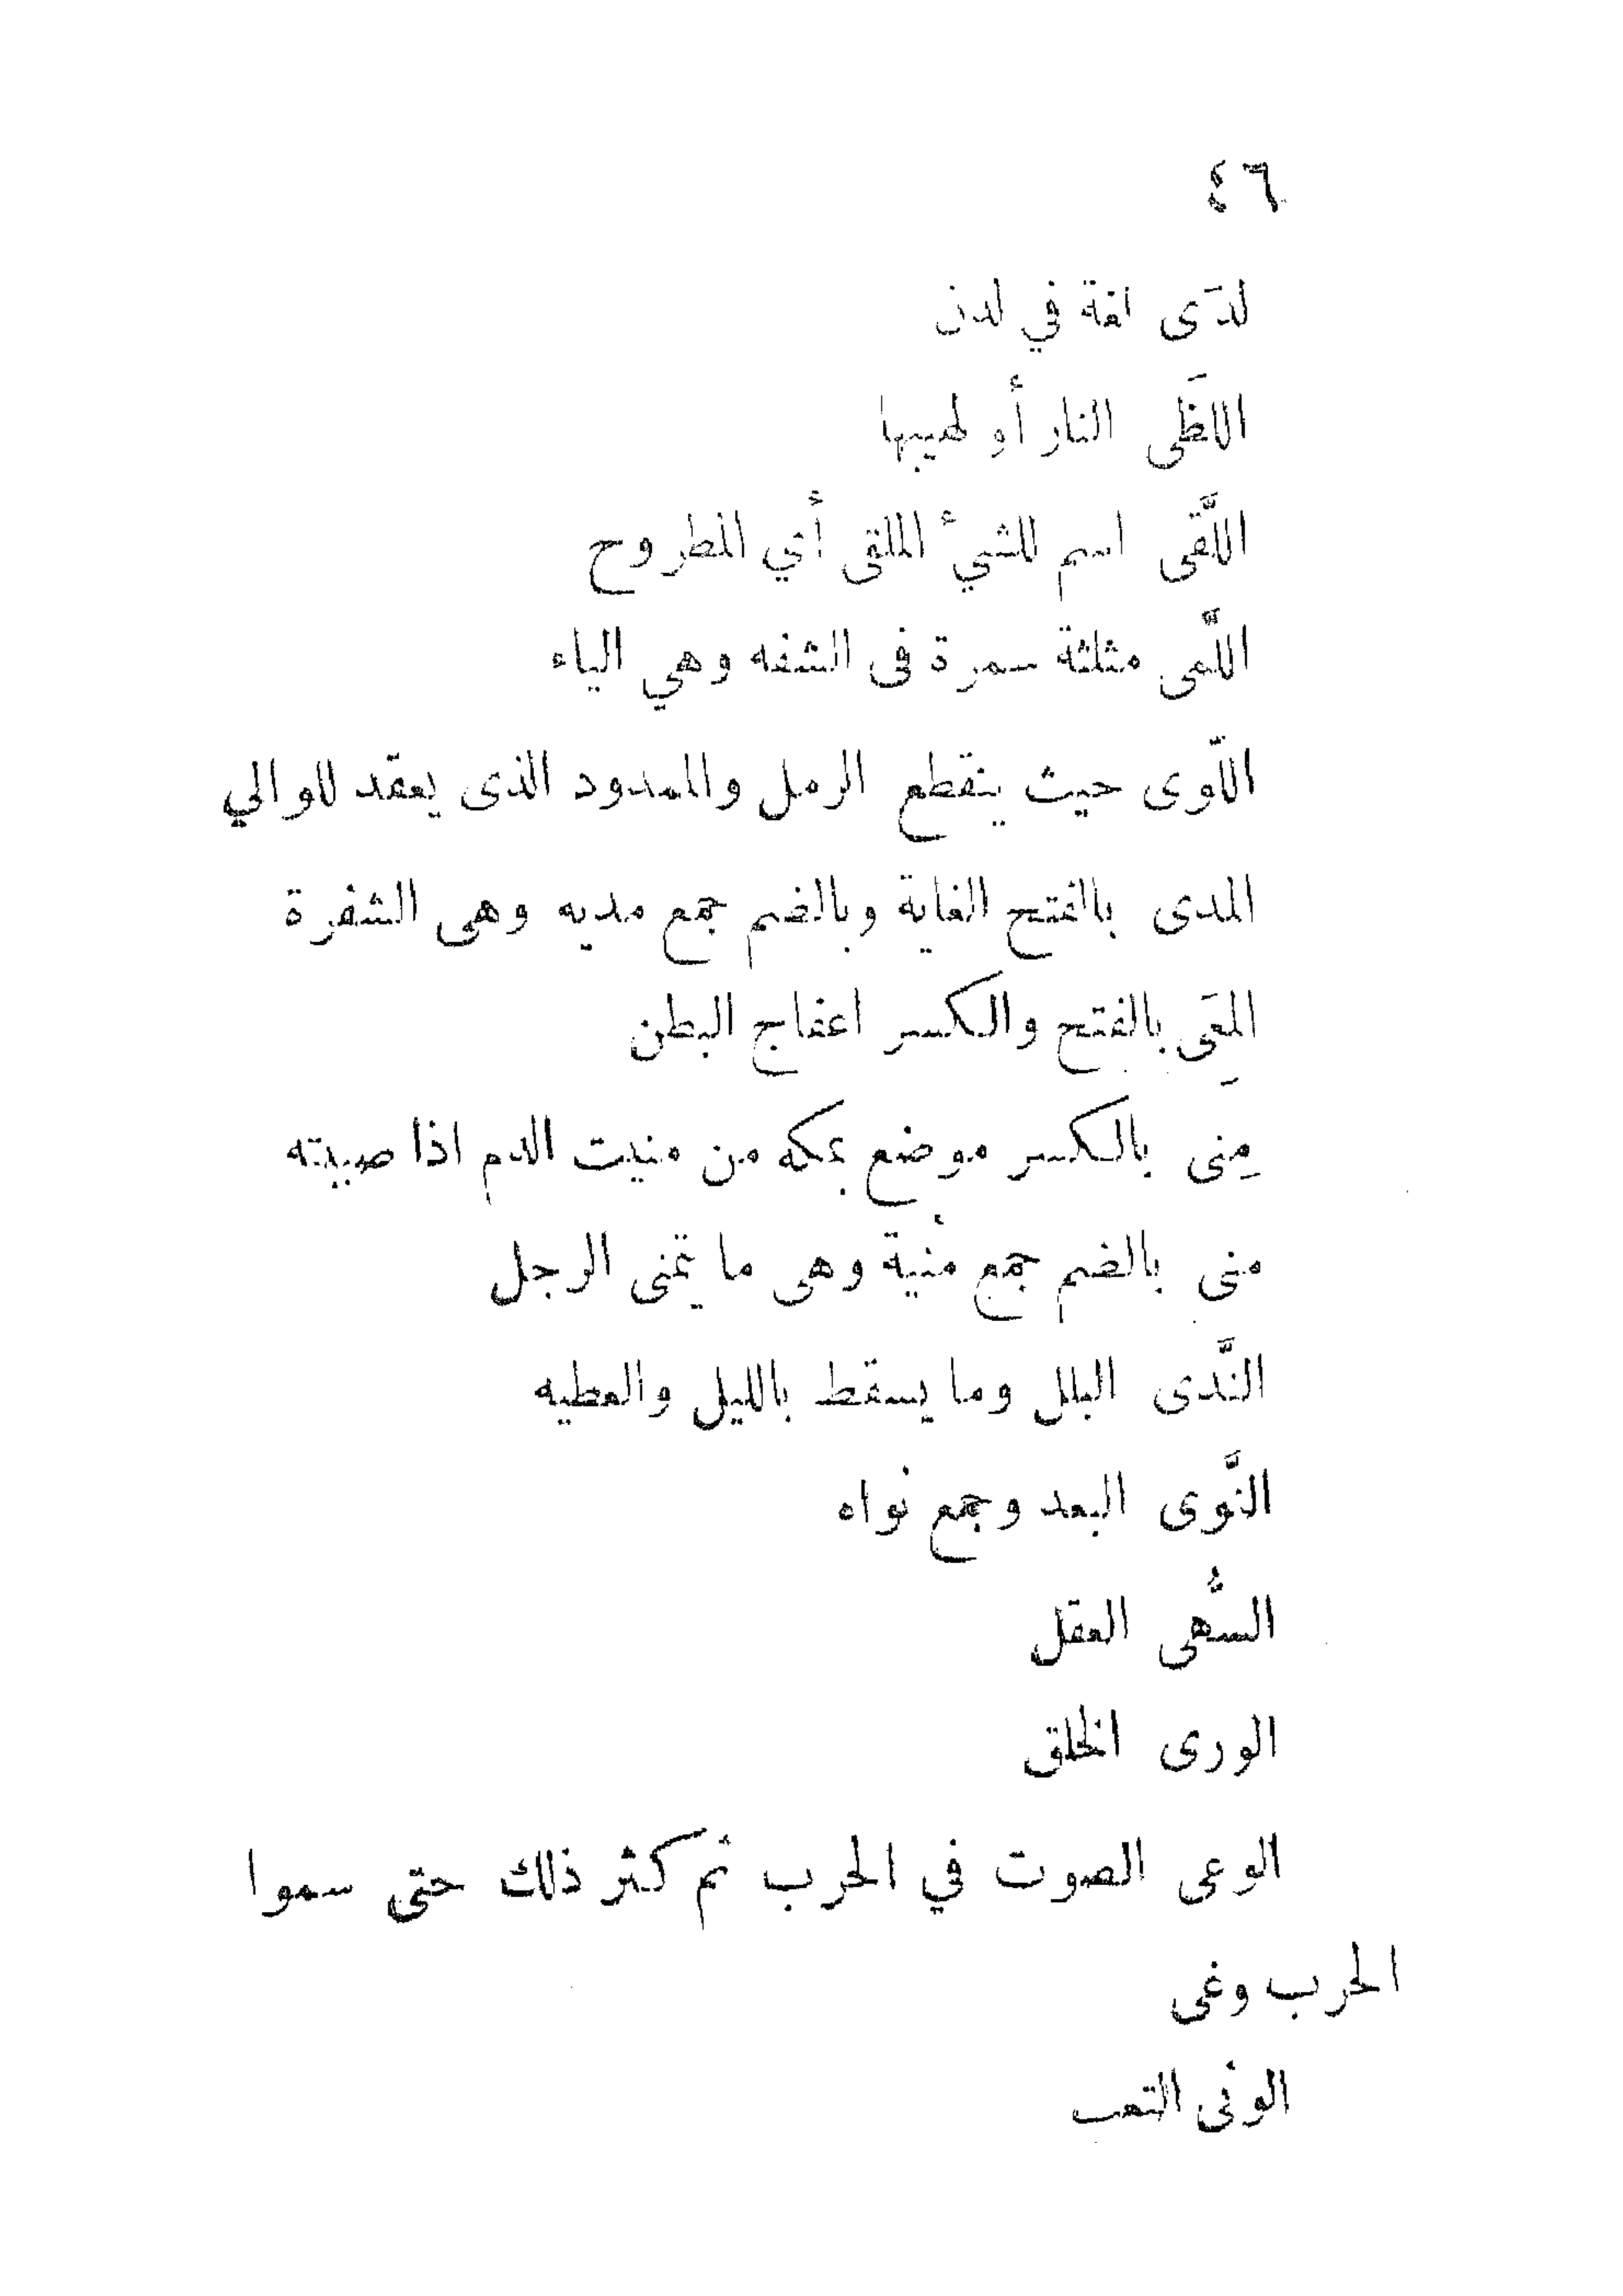 ٤٦
لدَى لغة في لدن
اللظَى النار أو لهيبها
اللَّقى اسم للشيئ الملقى أي المطروح
اللَّمى مثلثة سمرة فى الشفه وهي الياء
اللّوى حيث ينقطع الرمل والممدود الذى يعقد للوالي
المدى بالفتح الغاية وبالضم جمع مديه وهى الشفرة
المِعَى بالفتح والكسر اعفاج البطن
مِنى بالكسر موضع بمكه من منيت الدم اذا صبيته
منى بالضم جمع مُنية وهى ما يتمنى الرجل
النَّدى البلل وما يسقط بالليل والعطيه
النَّوى البعد وجمع نواه
السُّهى العقل
الورى الخلق
الوعى الصوت في الحرب ثم كثر ذلك حتى سموا
الحرب وغى
الونى التعب